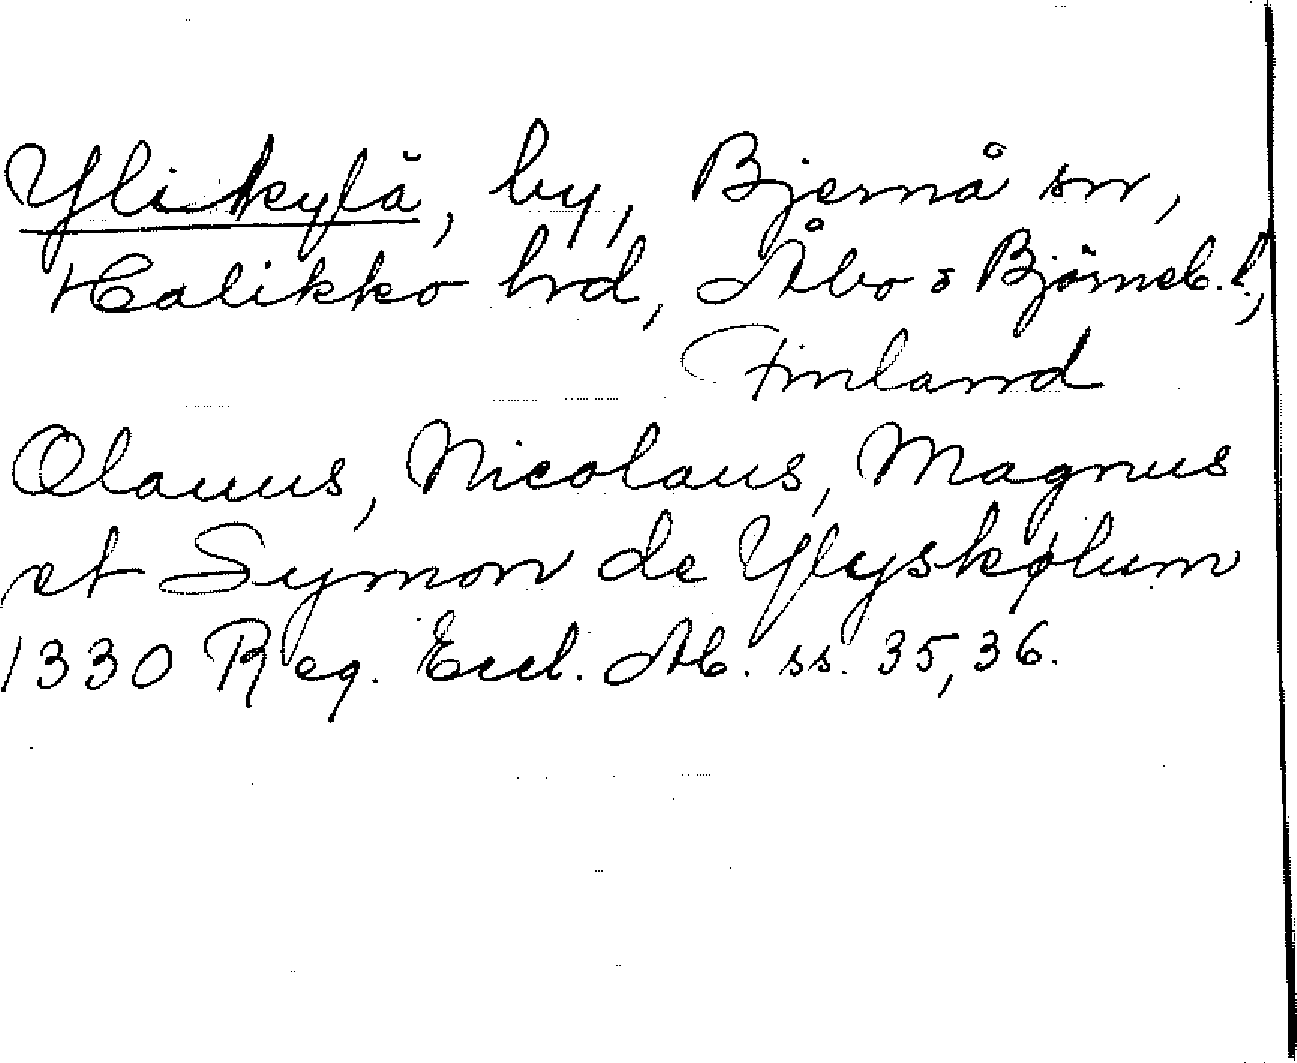 Ylikylä, by, Bjernå sn,
Halikko hd, Åbo o Björneb. l.,
Finland
Olauus, Nicolaus, Magnus
et Symon de Ylyskølum
1330 Reg. Eccl. Ab. ss. 35, 36.